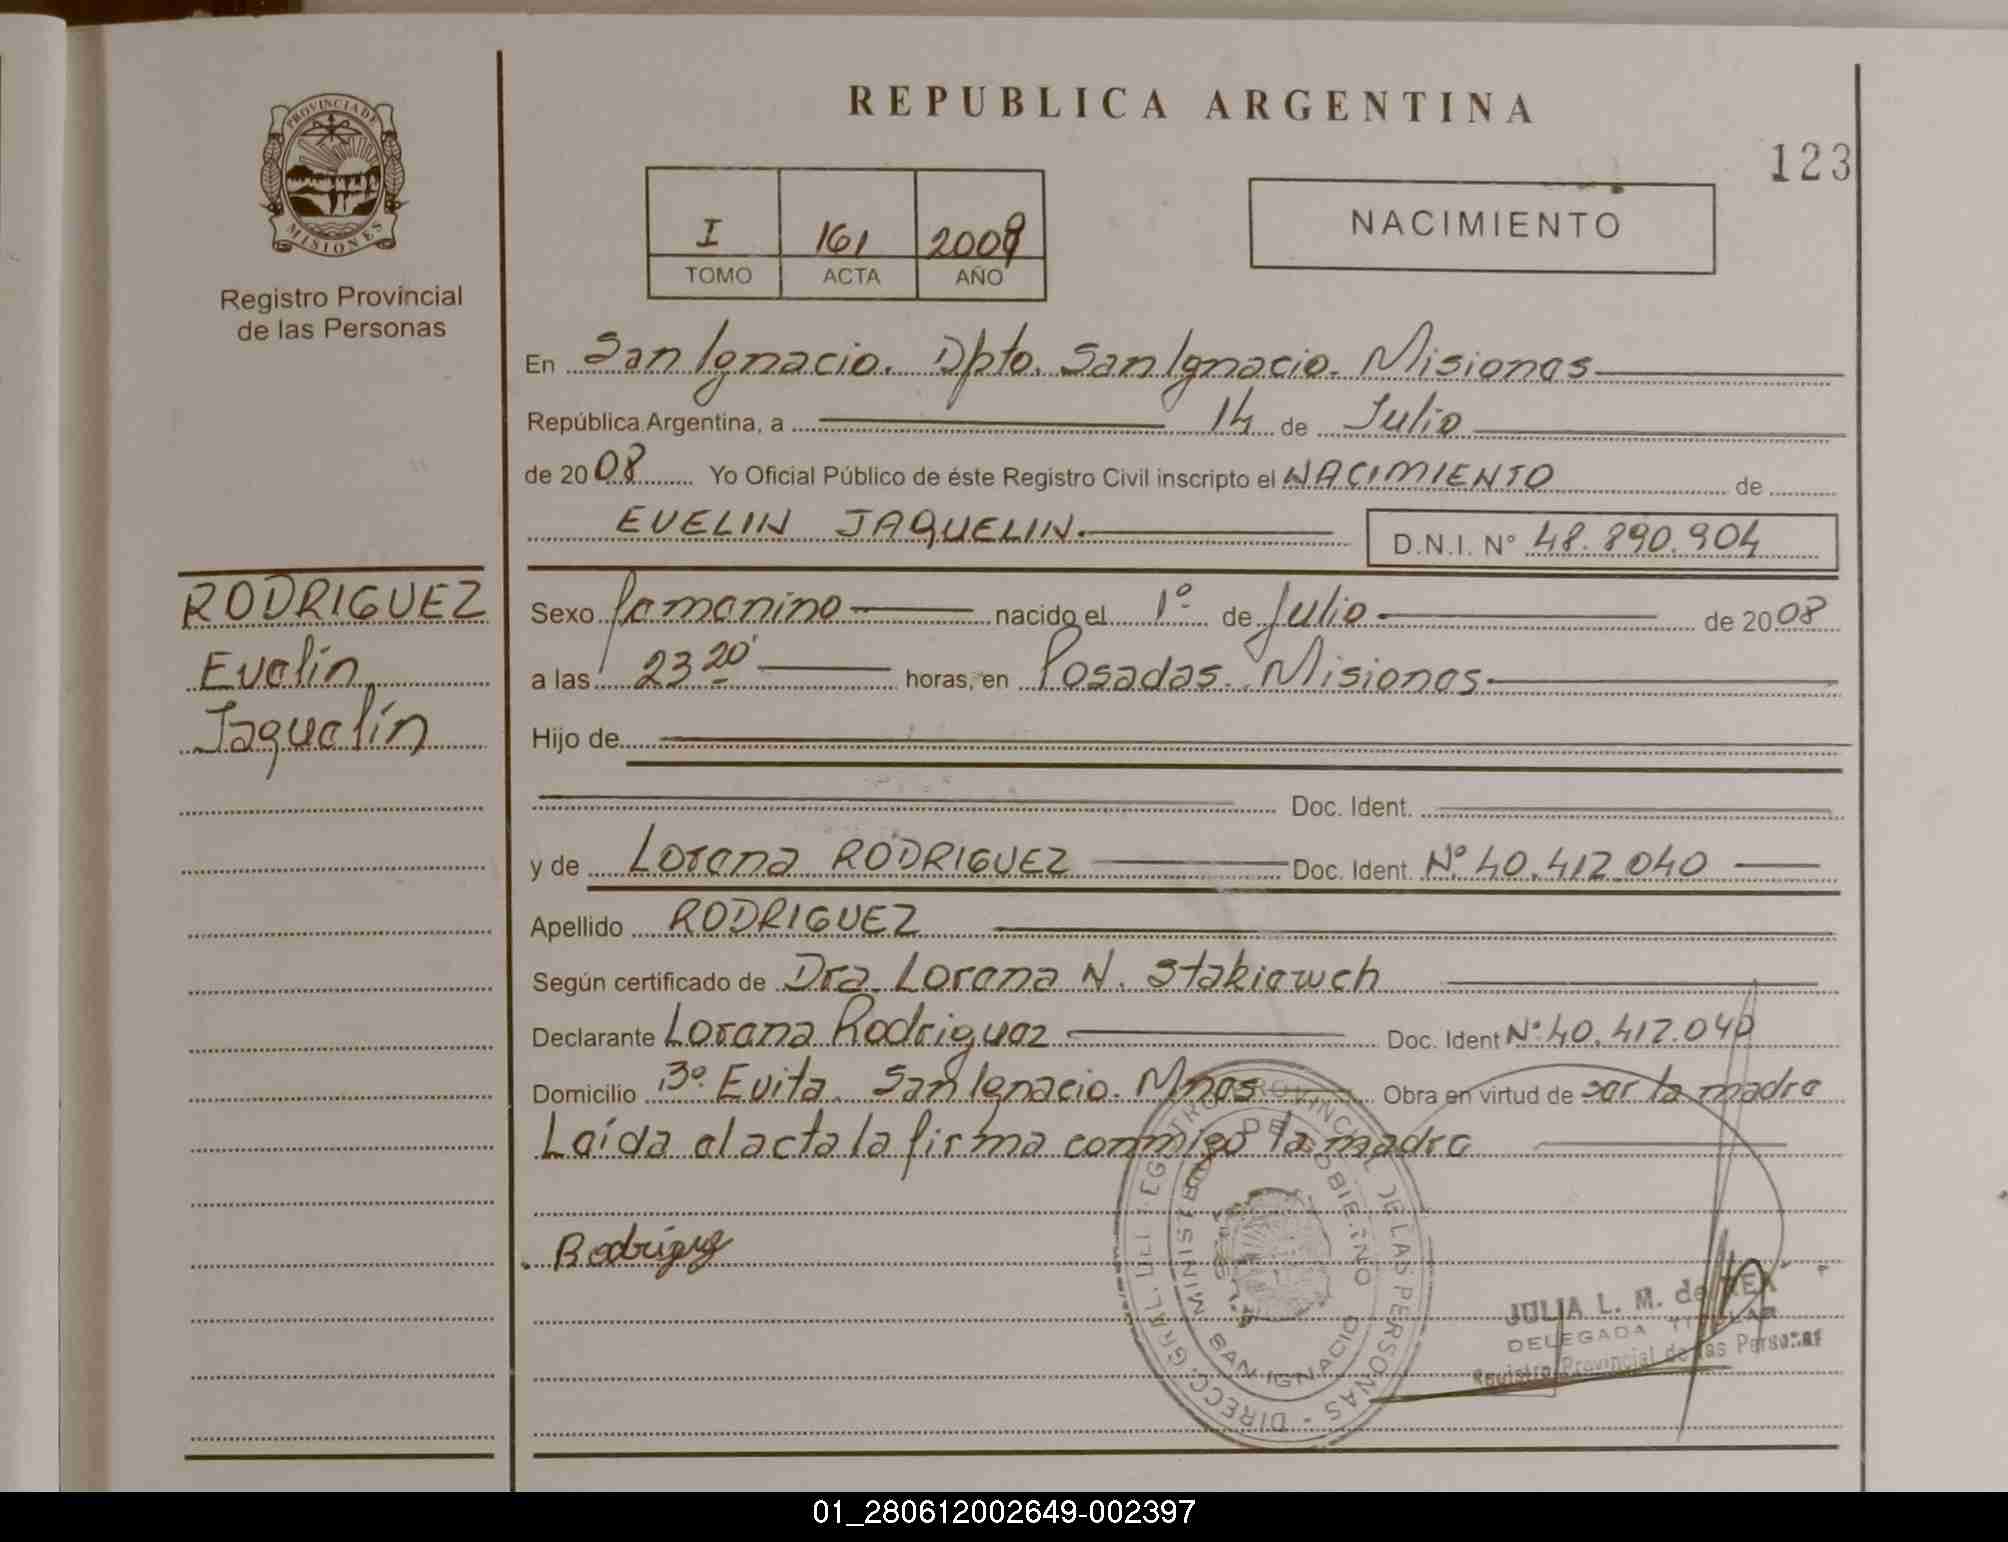 REPUBLICA ARGENTINA
123
PROVINCIA DE
MISIONES
Registro Provincial
de las Personas
I 161 2008
TOMO ACTA AÑO
NACIMIENTO
En San Ignacio. Dpto. San Ignacio. Misiones
República Argentina, a 14 de Julio
de 2008 Yo Oficial Público de éste Registro Civil inscripto el NACIMIENTO de
EVELIN JAQUELIN. D.N.I. N° 48.890.904
RODRIGUEZ
Evelin
Jaquelin
Sexo femenino nacido el 1º de Julio de 2008
a las 23 20' horas, en Posadas. Misiones
Hijo de
Doc. Ident.
y de Lorena RODRIGUEZ Doc. Ident. Nº 40.412.040
Apellido RODRIGUEZ
Según certificado de Dra. Lorena N. Stakiewch
Declarante Lorena Rodriguez Doc. Ident Nº 40.412.040
Domicilio Bº. Evita. San Ignacio. Mnes Obra en virtud de ser la madre
Leída el acta la firma conmigo la madre
Rodriguez
MINISTERIO DE GOBIERNO
SAN IGNACIO
PROVINCIAL DE LAS PERSONAS - DIRECC. GRAL. DEL REGISTRO
JULIA L. M. de REA
DELEGADA TITULAR
Registro Provincial de las Personas
01_280612002649-002397